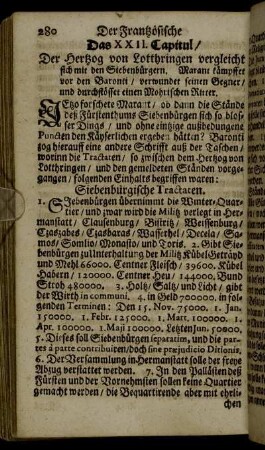 280 Der Frantzösische
Das XXII. Capitul/
Der Hertzog von Lotthringen vergleicht
sich mit den Siebenbürgern. Marant kämpffet
vor den Baronti/ verwundet seinen Gegner/
und durchstösset einen Mohrischen Ritter.
JEtzo forschete Marant/ ob dann die Stände
des Fürstenthums Siebenbürgen sich so blos-
ser Dings/ und ohne eintzige außbedungene
Puncten den Käyserlichen ergeben hätten? Baronti
zog hierauff eine andere Schrifft auß der Taschen/
worinn die Tractaten/ so zwischen dem Hertzog von
Lotthringen/ und den gemeldeten Ständen vorge-
gangen/ folgenden Einhalts begriffen waren:
Siebenbürgische Tractaten.
1. SIebenbürgen übernimmt die Winter-Quar-
tier/ und zwar wird die Militz verlegt in Her-
manstatt/ Clausenburg/ Bistritz/ Weissenburg/
Czaszabes/ Czasbaras/ Wasserhel/ Decela/ Sa-
mos/ Somlio/ Monasto/ und Toris. 2. Gibt Sie-
benbürgen zu Unterhaltung der Militz Kübel Geträyd
und Mehl 66000. Centner Fleisch/ 39600. Kübel
Habern/ 120000. Centner Heu/ 144000. Bund
Stroh 480000. 3. Holtz/ Saltz/ und Licht/ gibt
der Wirth in communi. 4. in Geld 700000. in fol-
genden Terminen: Den 15. Nov. 75000. 1. Jan.
150000. 1. Febr. 125000. 1. Mart. 100000. 1.
Apr. 100000. 1. Maji 100000. Letzten Jun. 50000.
5. Dieses soll Siebenbürgen separatim, und die par-
tes à parte contribuiren/ doch sine præjudicio Ditionis.
6. Der Versammlung in Hermanstatt solle der freye
Abzug verstattet werden. 7. In den Pallästen deß
Fürsten und der Vornehmsten sollen keine Quartier
gemacht werden/ die Bequartirende aber mit ehrli-
chen